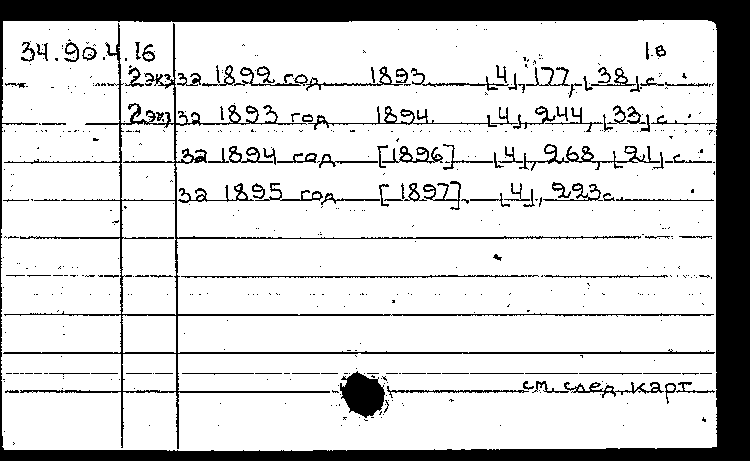 34.90.4.16 1в
2экз за 1892 год 1893 [4], 177, [38] с.
2экз за 1893 год 1894. [4], 244, [33] с.
за 1894 год [1896] [4], 268, [21] с.
за 1895 год [1897]. [4], 223с.
см. след. карт.